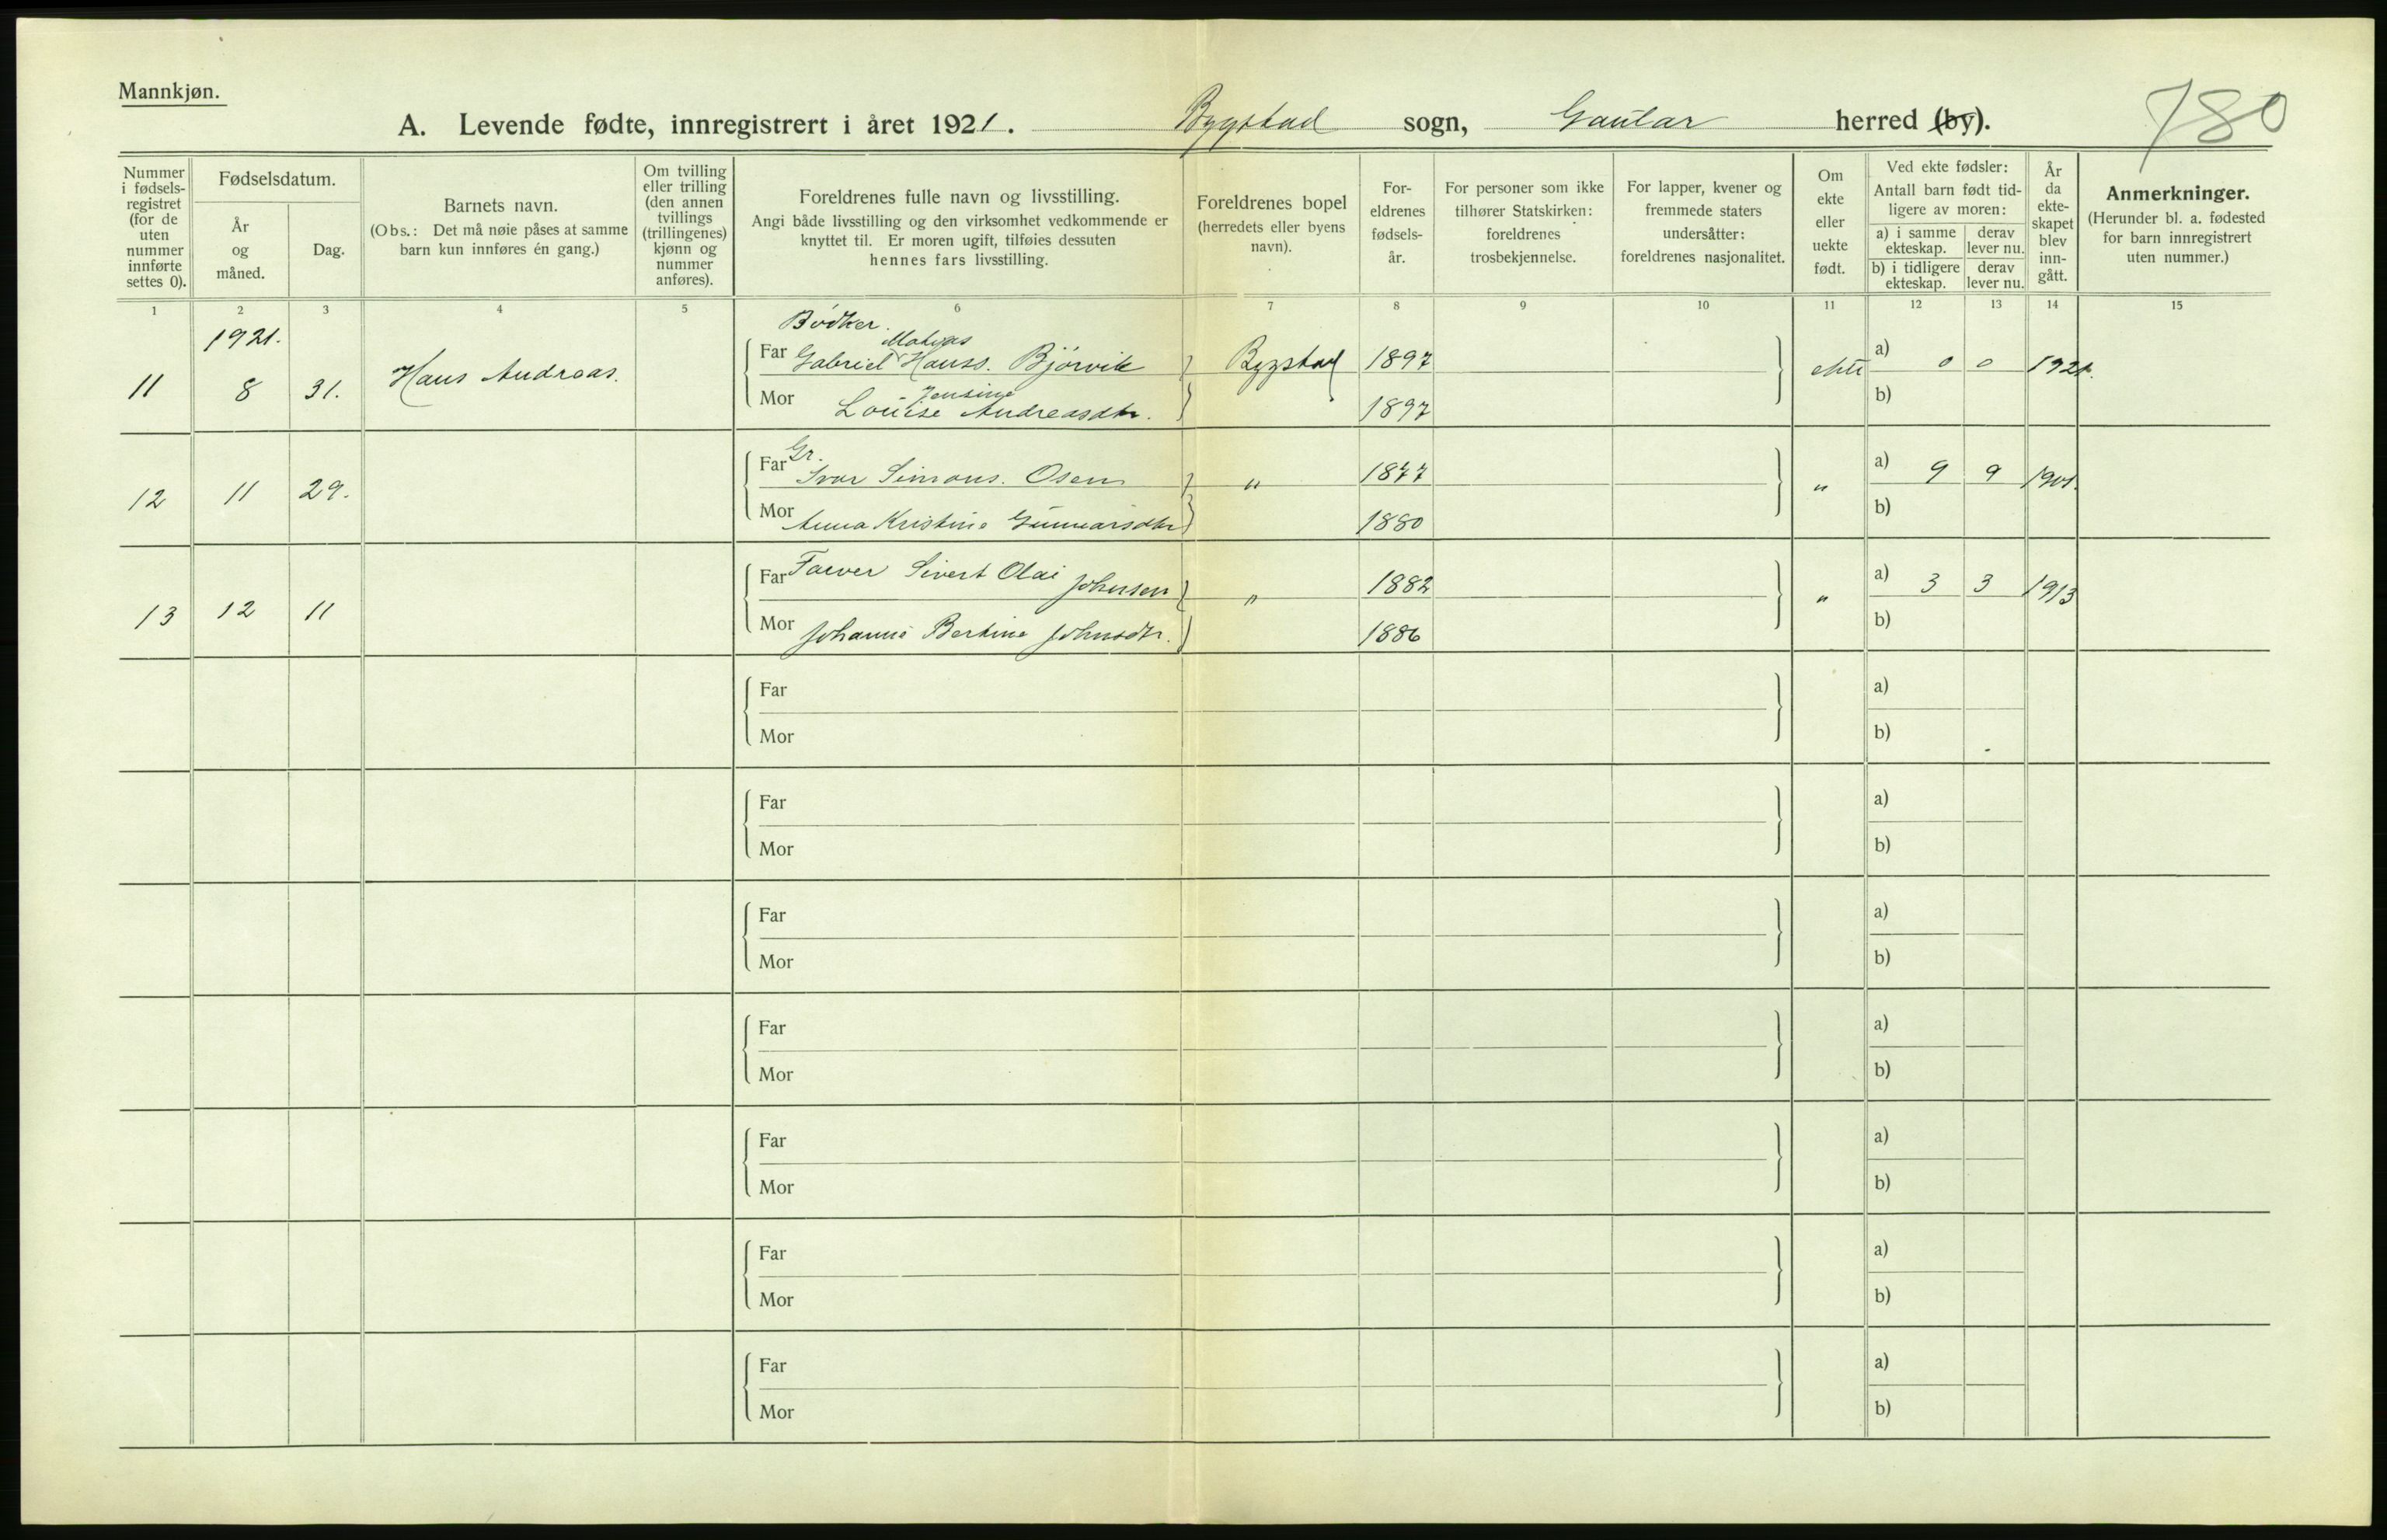 Mannkjøn.
A. Levende fødte, innregistrert i året 1921. Bygstad sogn, Gaular herred (by).
780
Nummer i fødsels-registret (for de uten nummer innførte settes 0).
Fødselsdatum.
År og måned.
Dag.
Barnets navn.
(Obs.: Det må nøie påses at samme barn kun innføres én gang.)
Om tvilling eller trilling (den annen tvillings (trillingenes) kjønn og nummer anføres).
Foreldrenes fulle navn og livsstilling.
Angi både livsstilling og den virksomhet vedkommende er knyttet til. Er moren ugift, tilføies dessuten hennes fars livsstilling.
Foreldrenes bopel (herredets eller byens navn).
For-eldrenes fødsels-år.
For personer som ikke tilhører Statskirken: foreldrenes trosbekjennelse.
For lapper, kvener og fremmede staters undersåtter: foreldrenes nasjonalitet.
Om ekte eller uekte født.
Ved ekte fødsler:
Antall barn født tid-ligere av moren:
a) i samme ekteskap.
derav lever nu.
b) i tidligere ekteskap.
derav lever nu.
År da ekte-skapet blev inn-gått.
Anmerkninger.
(Herunder bl. a. fødested for barn innregistrert uten nummer.)
1 2 3 4 5 6 7 8 9 10 11 12 13 14 15
1921.
Bödker.
Matias
11 8 31. Hans Andreas. Far Gabriel Hanss. Bjørvik Bygstad 1897 ekte a) 0 0 1921.
Jensine
Mor Louise Andreasdtr. 1897 b)
Gr.
12 11 29. Far Ivar Simons. Osen " 1877 " a) 9 9 1901.
Mor Anna Kristine Gunnarsdtr 1880 b)
13 12 11 Far Farver Sivert Olai Johnsen " 1882 " a) 3 3 1913
Mor Johanne Bertine Johnsdtr. 1886 b)
Far a)
Mor b)
Far a)
Mor b)
Far a)
Mor b)
Far a)
Mor b)
Far a)
Mor b)
Far a)
Mor b)
Far a)
Mor b)